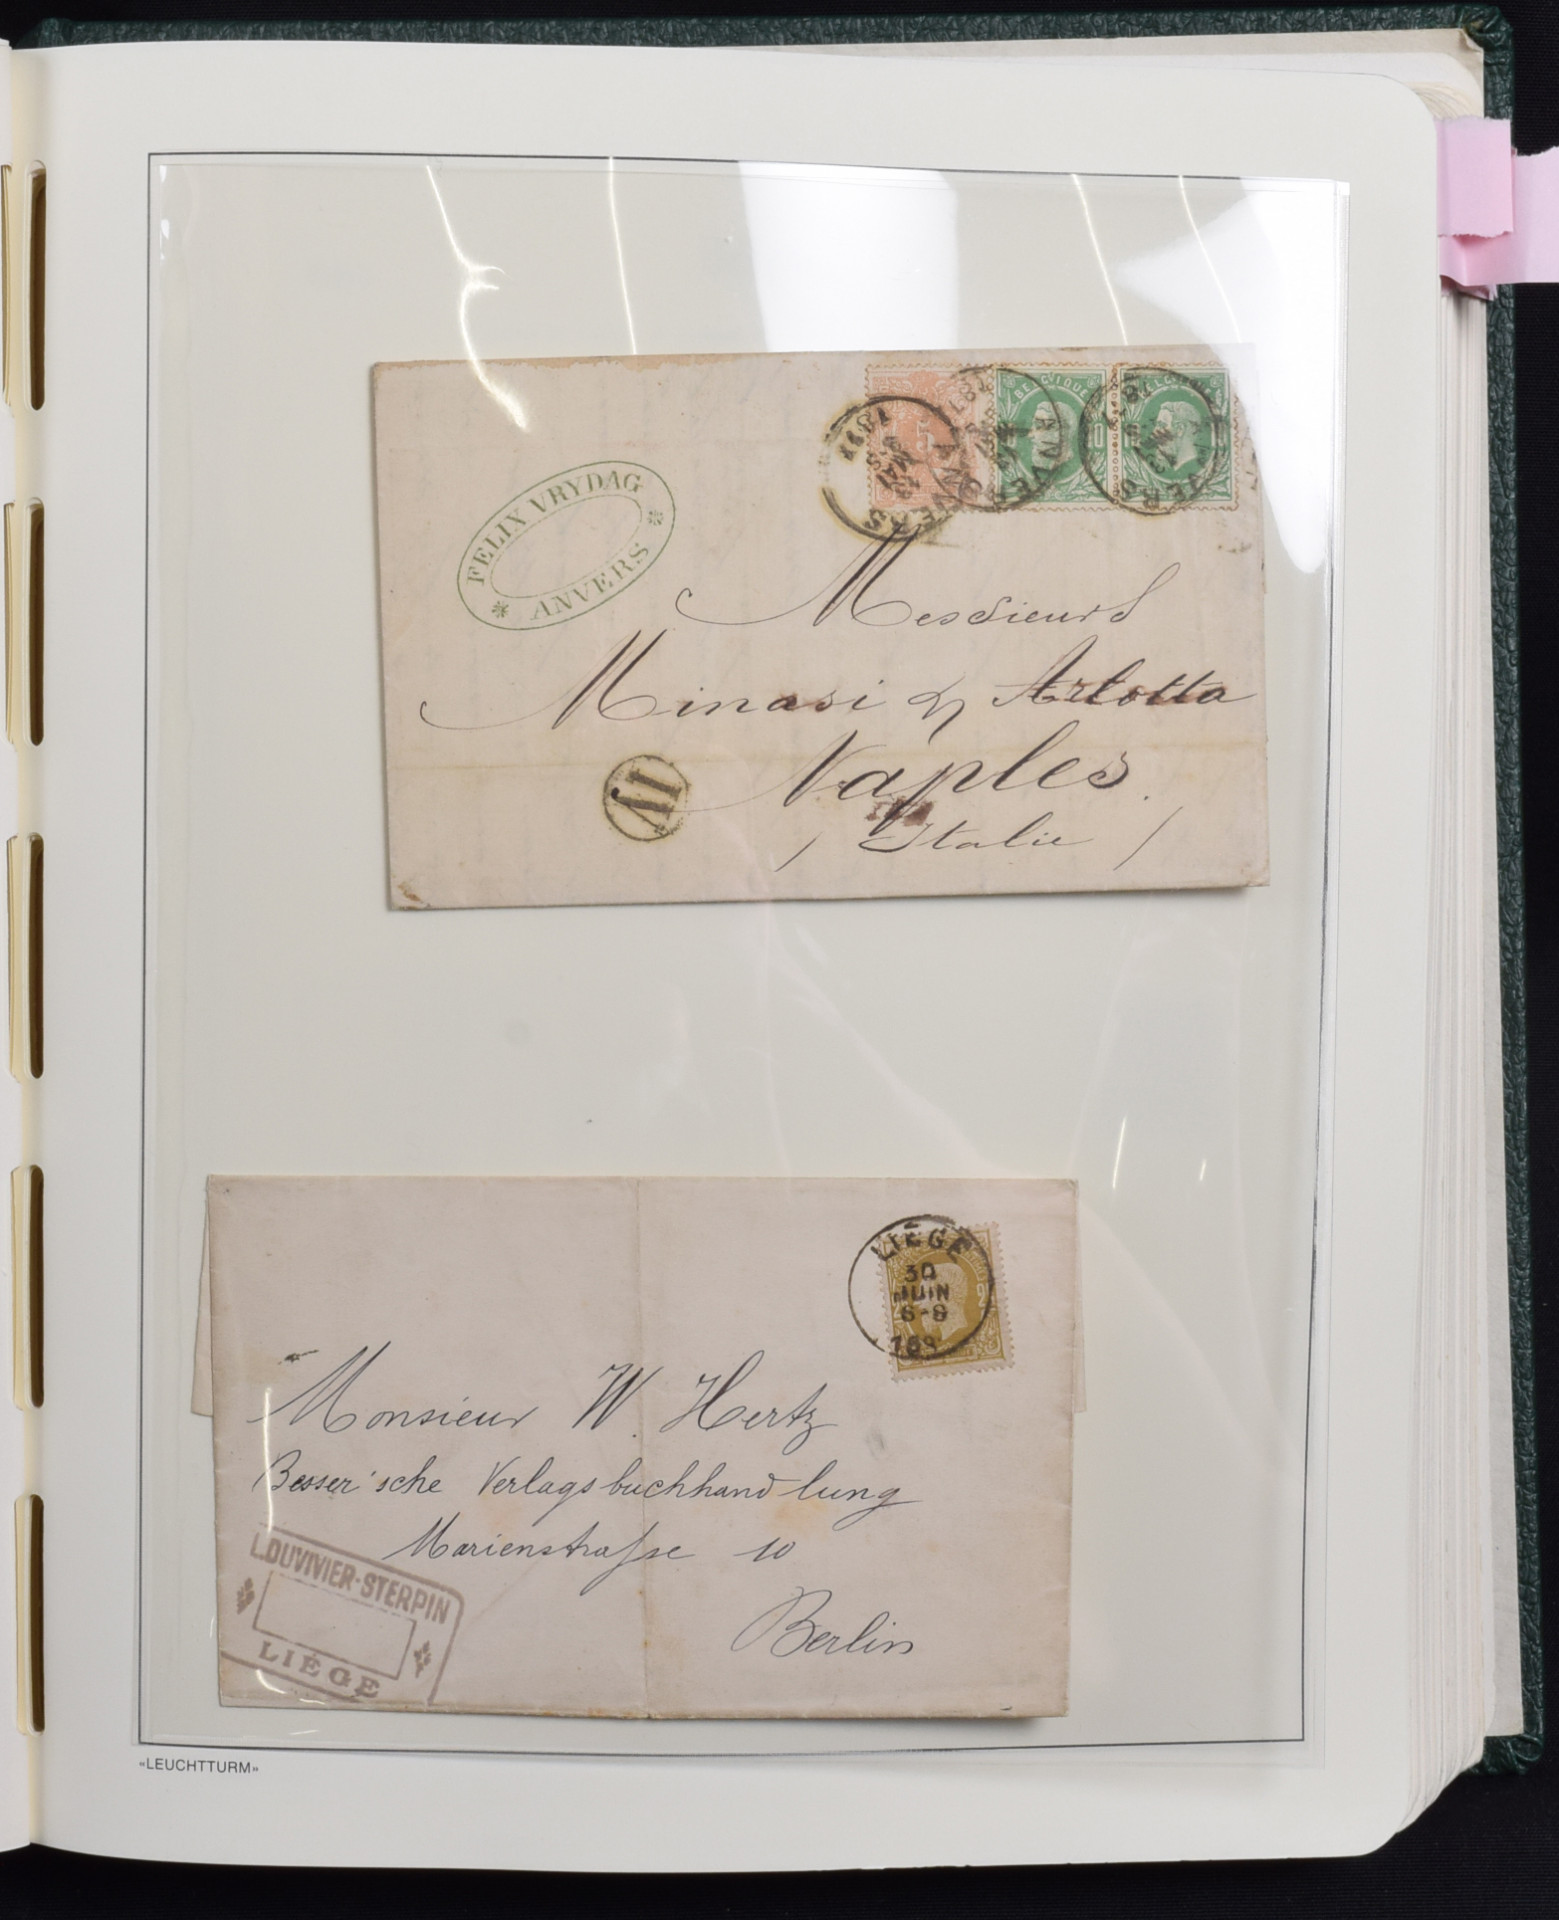 FELIX VRYDAG
ANVERS
5
BELGIQUE
ANVERS
Messieurs
Minasi & Arlotta
Naples
(Italie)
LIÉGE
30
JUIN
6-8
Monsieur W. Hertz
Besser'sche Verlagsbuchhandlung
Marienstrasse 10
Berlin
L.DUVIVIER-STERPIN
LIÉGE
«LEUCHTTURM»